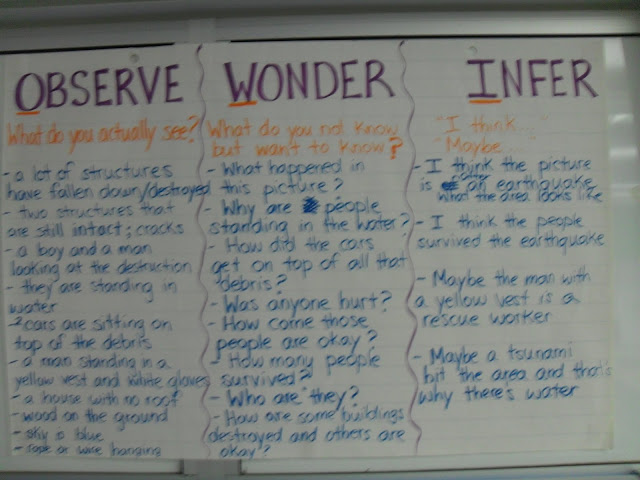 OBSERVE
What do you actually see?
- a lot of structures
have fallen down/destroyed
- two structures that
are still intact; cracks
- a boy and a man
looking at the destruction
- they are standing in
water
- 2 cars are sitting on
top of the debris
- a man standing in a
yellow vest and white gloves
- a house with no roof
- wood on the ground
- sky is blue
- rope or wire hanging
WONDER
What do you not know
but want to know?
- What happened in
this picture?
- Why are people
standing in the water?
- How did the cars
get on top of all that
debris?
- Was anyone hurt?
- How come those
people are okay?
- How many people
survived?
- Who are they?
- How are some buildings
destroyed and others are
okay?
INFER
"I think...
"Maybe...
- I think the picture
is after an earthquake
what the area looks like
- I think the people
survived the earthquake
- Maybe the man with
a yellow vest is a
rescue worker
- Maybe a tsunami
hit the area and that's
why there's water